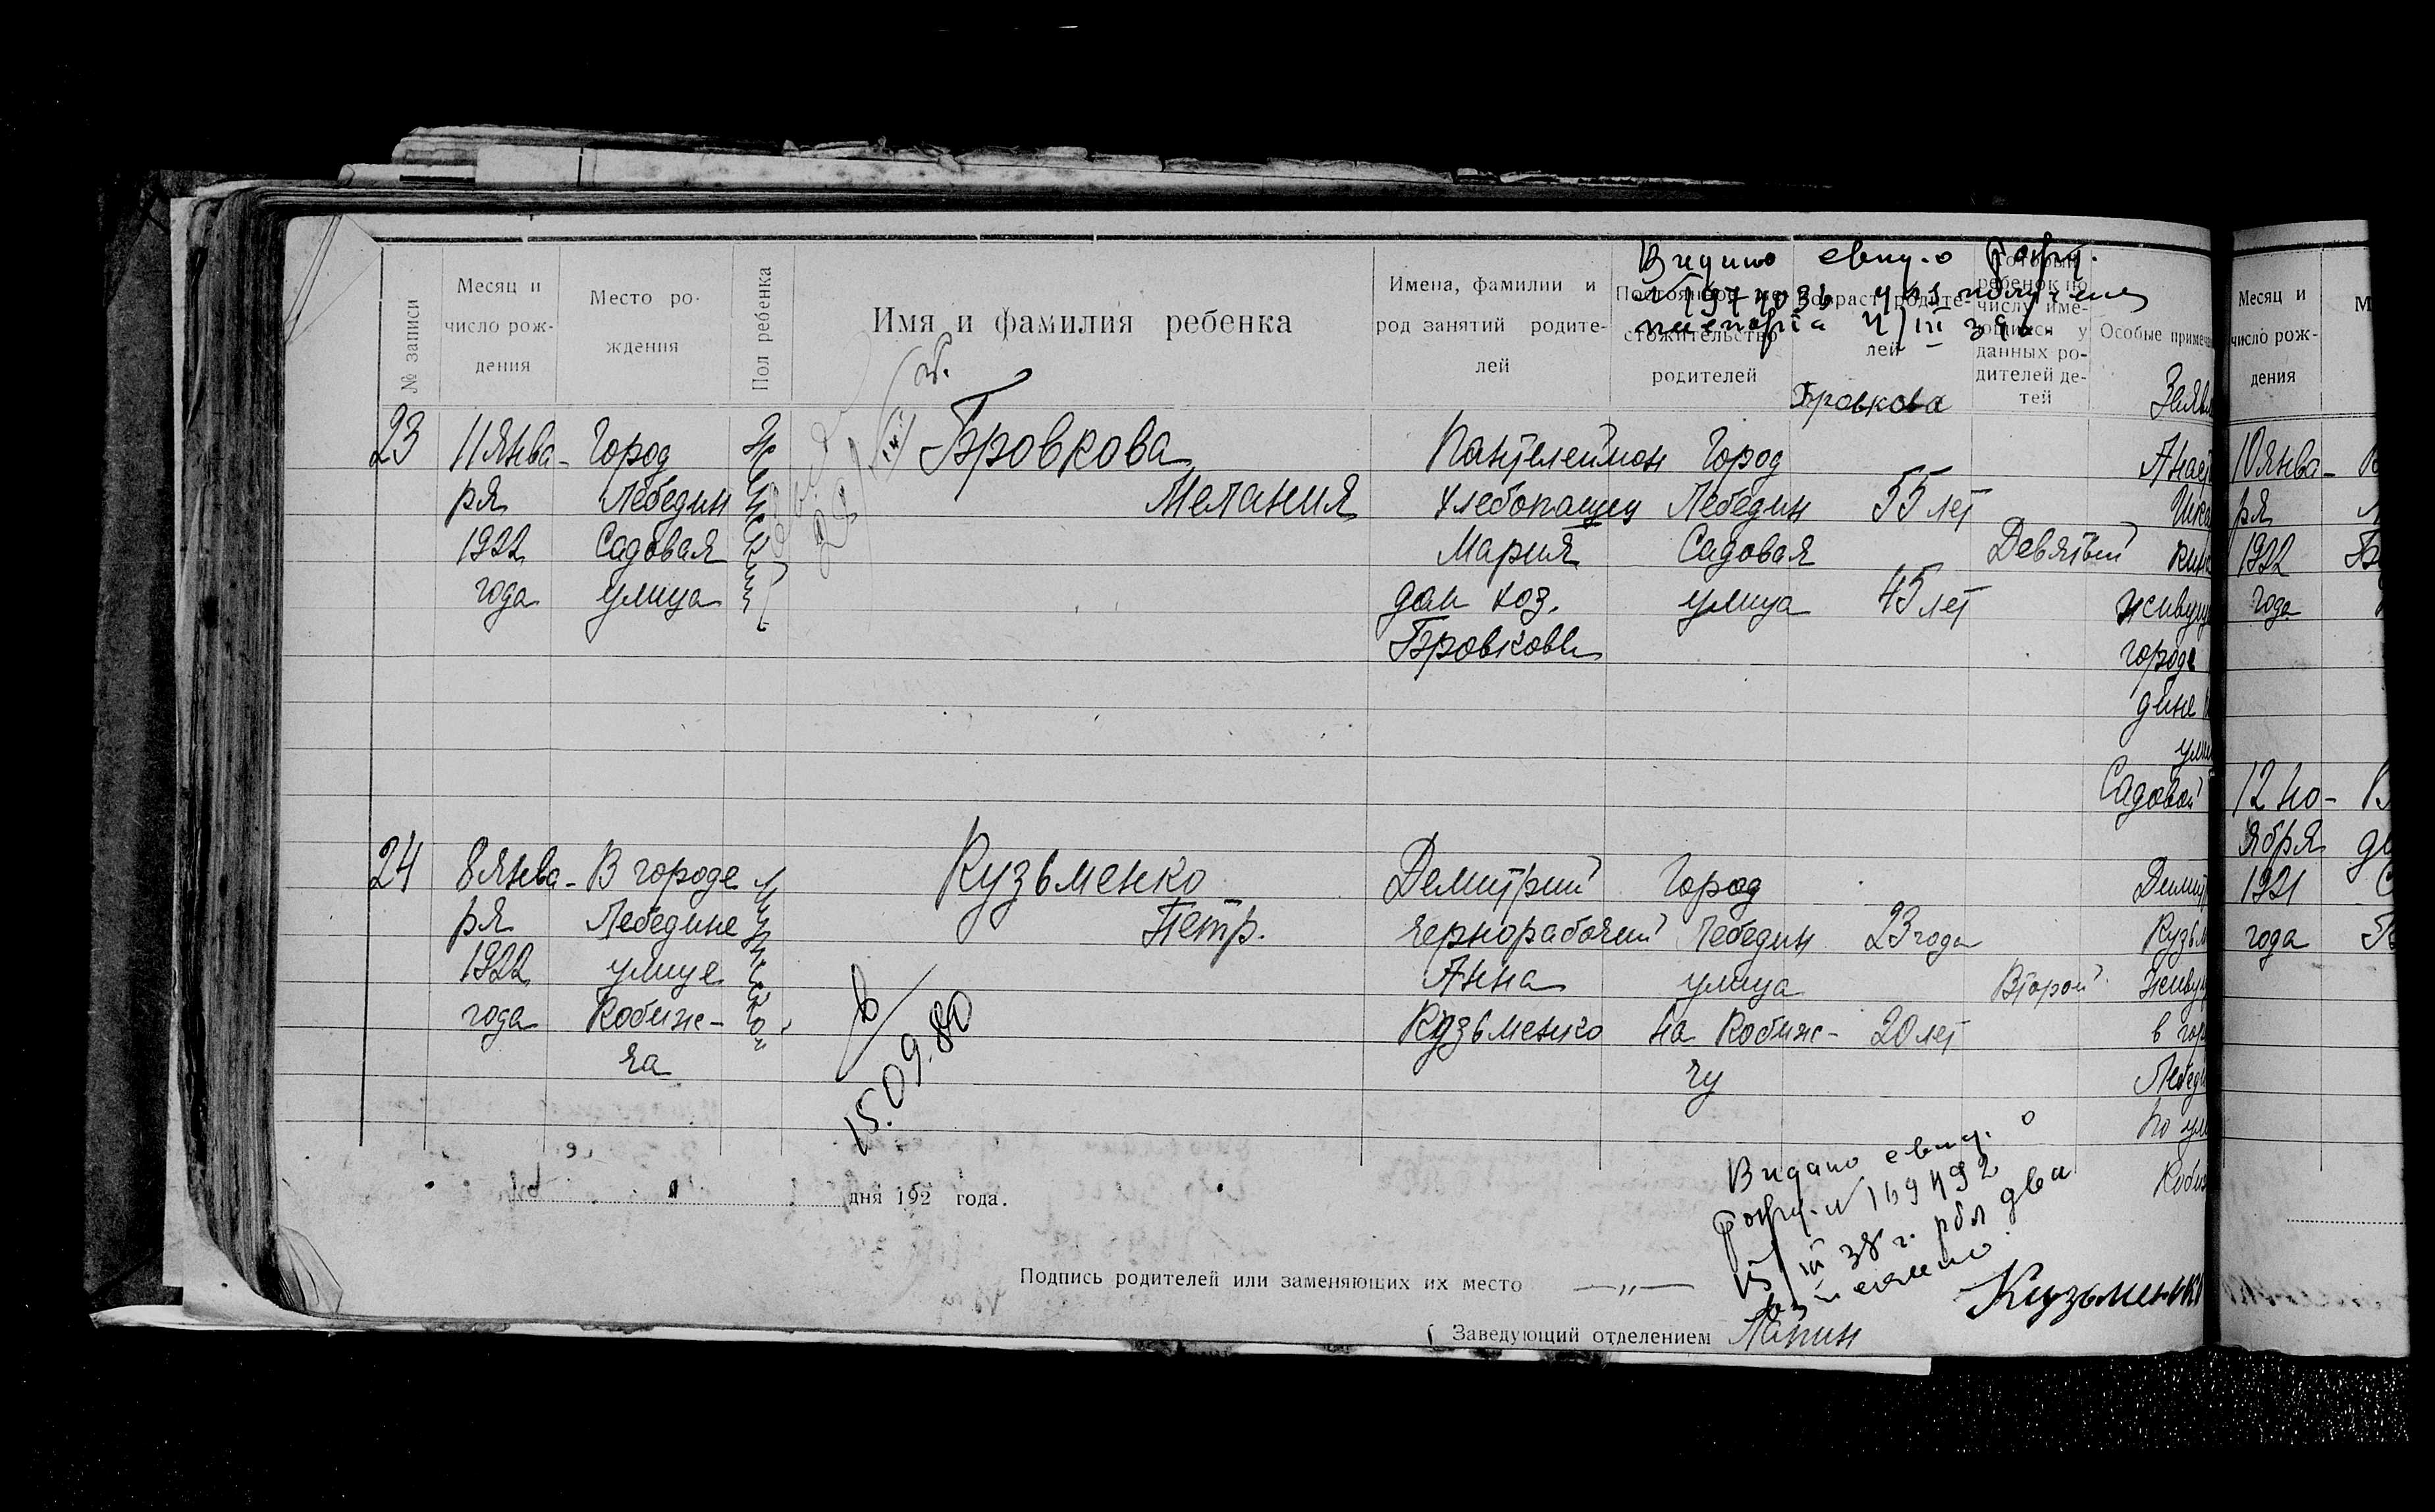 № записи
Месяц и
число рож-
дения
Место ро-
ждения
Пол ребенка
Имя и фамилия ребенка
Имена, фамилии и
род занятий родите-
лей
Постоянное
стожительство
родителей
Возраст родите-
лей
Который
ребенок по
числу име-
ющихся у
данных ро-
дителей де-
тей
Особые примеча
Видано свид. о
паспорта 4/III 39
Бровкова
23
11 Янва-
ря
1922
года
Город
Лебедин
Садовая
улица
Женский
Бровкова
Мелания
Пантелеймон
хлебопашец
Мария
дом хоз.
Бровковы
Город
Лебедин
Садовая
улица
55 лет
45 лет
Девятый
Заявл
Анаст
живущ
городе
дине
ули
Садовой
24
8 Янва-
ря
1922
года
В городе
Лебедине
улице
Кобиж-
ча
Мужской
Кузьменко
Петр.
15.09.80
Демитрий
чернорабочий
Анна
Кузьменко
Город
Лебедин
улица
на Кобиж-
чу
23 года
20 лет
Второй
Димит
Кузьм
Живущ
в гор
Лебед
по ул
Кобиж
дня 192 года.
Видано свид. о
№ 169492
III 38 г. два
Подпись родителей или заменяющих их место —„—
Кузьменко
Заведующий отделением Лапин
Месяц и
число рож-
дения
М
10 янва-
ря
1922
года
12 но-
ября
1921
года